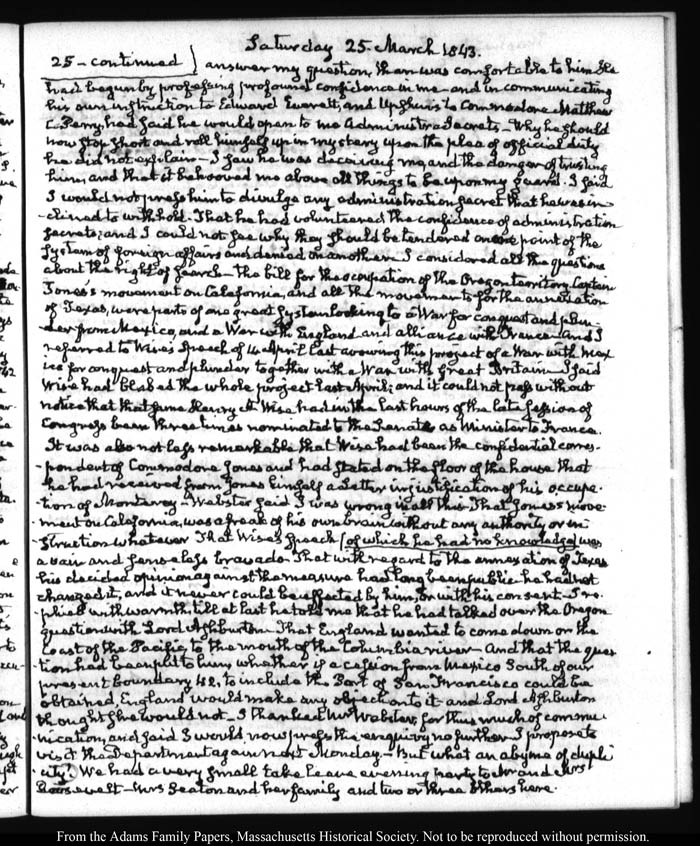 Saturday 25. March 1843.
25 - continued) answer my question, than was comfortable to him. He
had begun by professing profound confidence in me - and in communicating
his own instruction to Edward Everett, and Upshur's to Commodore Matthew
C. Perry, had said he would open to me Administra secrets - Why he should
now stop short and roll himself up in mystery upon the plea of official duty
he did not explain - I saw he was deceiving me, and the danger of trusting
him, and that it behooved me above all things to be upon my guard. I said
I would not press him to divulge any administration secret that he was in-
-clined to withhold. That he had volunteered the confidence of administration
secrets; and I could not see why they should be tendered on one point of the
System of foreign affairs and denied on another. I considered all the questions
about the right of search - the bill for the occupation of the Oregon territory, Captain
Jones's movement on California, and all the movements for the annexation
of Texas, were parts of one great system looking to a War for conquest and plun-
der from Mexico, and a War with England and alliance with France - and I
referred to Wise's Speech of 14 April last avowing this project of a War with Mex
ico for conquest and plunder together with a War with Great Britain - I said
Wise had blabbed the whole project last April; and it could not pass without
notice that that same Henry A Wise had in the last hours of the late session of
Congress been three times nominated to the Senate as Minister to France.
It was also not less remarkable that Wise had been the confidential corres-
-pondent of Commodore Jones and had stated on the floor of the house that
he had received from Jones himself a Letter in justification of his occupa-
-tion of Monterey - Webster said I was wrong in all this. That Jones's move-
-ment on California, was a freak of his own brain without any authority or in
struction whatever That Wise's Speech (of which he had no knowledge) was
a vain and senseless bravado. That with regard to the annexation of Texas
his decided opinion against the measure had long been public he had not
changed it, and it never could be effected by him, or with his consent - I re-
-plied with warmth, till at last he told me that he had talked over the Oregon
question with Lord Ashburton. That England wanted to come down on the
Coast of the Pacific to the mouth of the Columbia river - And that the ques
tion had been put to him whether if a cession from Mexico South of our
present boundary 42, to include the Port of San Francisco could be
obtained, England would make any objection to it and Lord Ashburton
thought she would not - I thanked Mr Webster, for thus much of commu-
-nication, and said I would now press the enquiry no further. I propose to
visit the Department again next Monday. - But what an abyme of dupli
city! We had a very small take leave evening party to Mr and Mrs
Roosevelt - Mrs Seaton and her family and two or three others here.
From the Adams Family Papers, Massachusetts Historical Society. Not to be reproduced without permission.